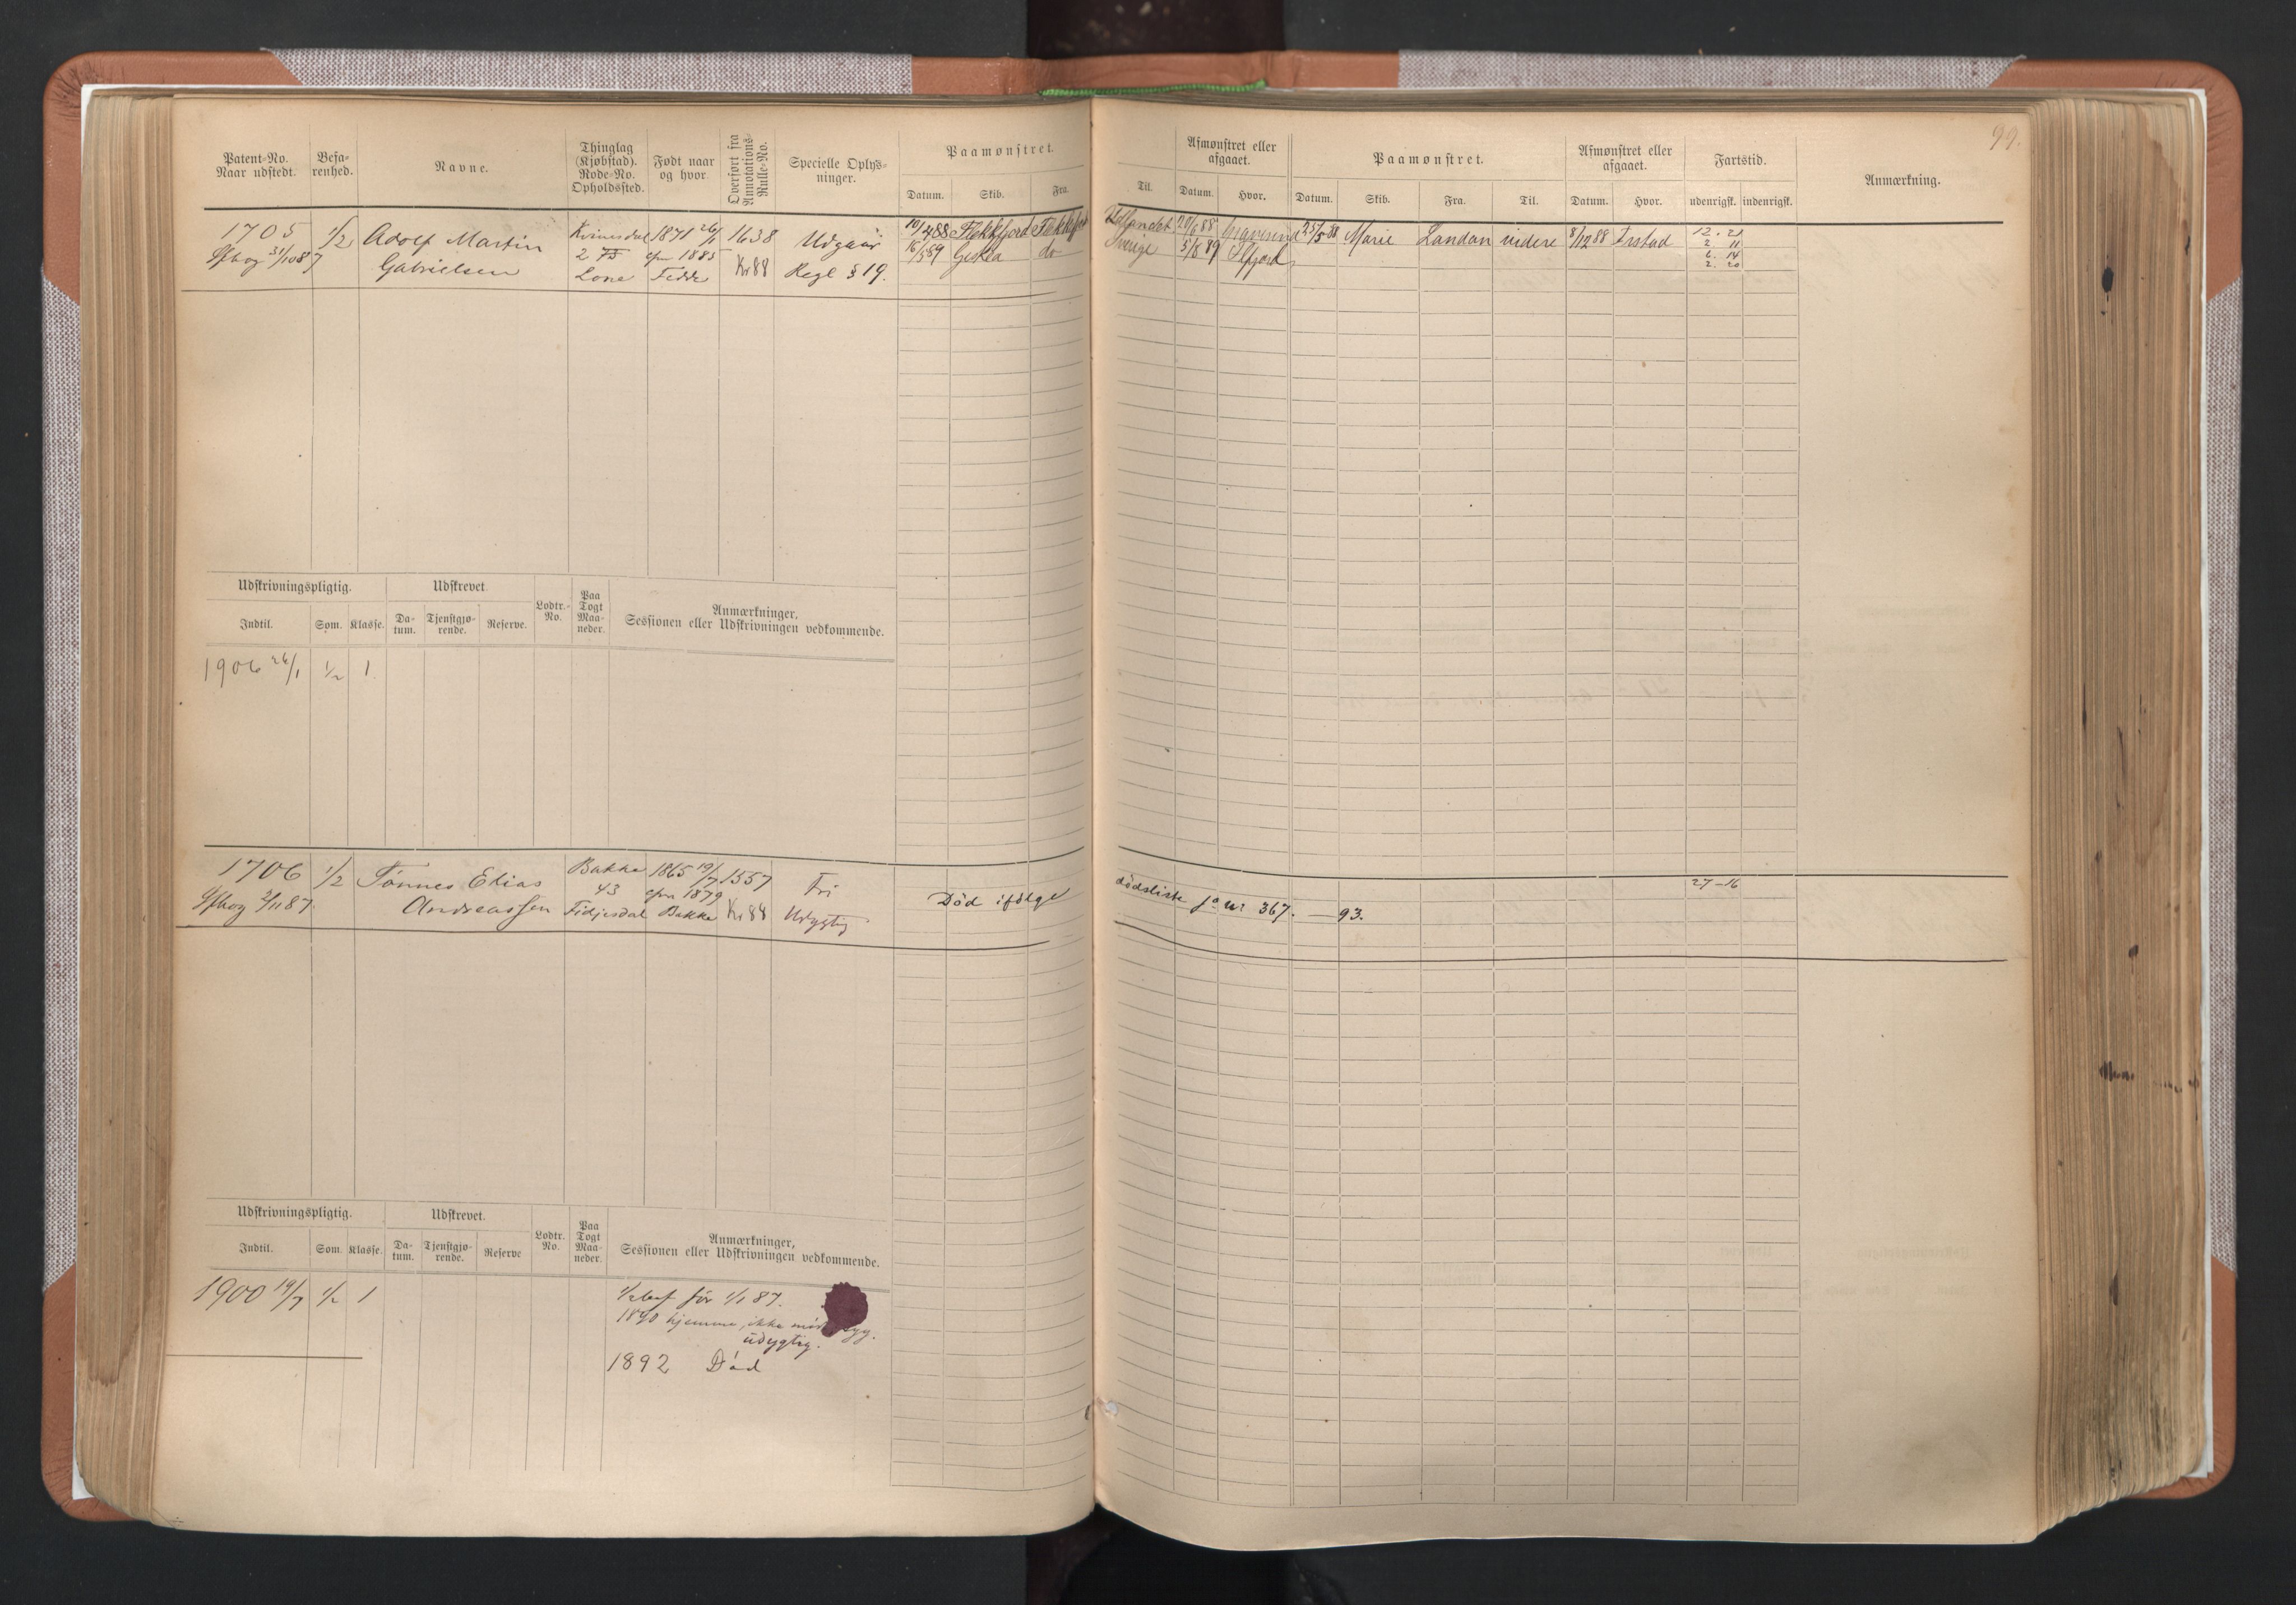 99.
Patent-No. Naar udstedt.
Befarenhed.
Navne.
Thinglag (Kjøbstad). Rode-No. Opholdssted.
Født naar og hvor.
Overført fra Annotations-Rulle-No.
Specielle Oplysninger.
Paamønstret.
Datum. Skib. Fra.
Til.
Afmønstret eller afgaaet.
Datum. Hvor.
Paamønstret.
Datum. Skib. Fra. Til.
Afmønstret eller afgaaet.
Datum. Hvor.
Fartstid.
udenrigsk. indenrigsk.
Anmærkning.
1705 1/2 Adolf Martin Kvinesdal 1871 26/1 1638 Udgaar
31/10 87 Gabrielsen 2 Cfm 1885 Kr 88 Regl § 19.
Lone Fedde
19/4 88 Flekkefjord Flekkefjord Udlandet 20/6 88 Gravesend 25/5 88 Marie London videre 8/12 88 Irstad 12. 21
15/5 89 Gisela do Sverige 3/8 89 2 11
6. 14
2. 20
Udskrivningspligtig.
Udskrevet.
Lodtr.-No.
Paa Togt Maaneder.
Anmærkninger, Sessionen eller Udskrivningen vedkommende.
Indtil. Søm. Klasse. Datum. Tjenstgjørende. Reserve.
1906 26/1 1/2 1
1706 1/2 Tönnes Elias Bakke 1865 19/7 1557 Fri
2/11 87. Andreassen 43 cfm 1879 Kr 88 Udygtig
Fidjesdal Bakke
Död ifölge dödsliste jo nr 367. — 93.
27-16
Udskrivningspligtig.
Udskrevet.
Lodtr. No.
Paa Togt Maaneder.
Anmærkninger, Sessionen eller Udskrivningen vedkommende.
Indtil. Søm. Klasse. Datum. Tjenstgjørende. Reserve
1900 19/7 1/2 1
1/2 bef för 1/1 87.
1890 hjemme, ikke
udygtig.
1892 Död